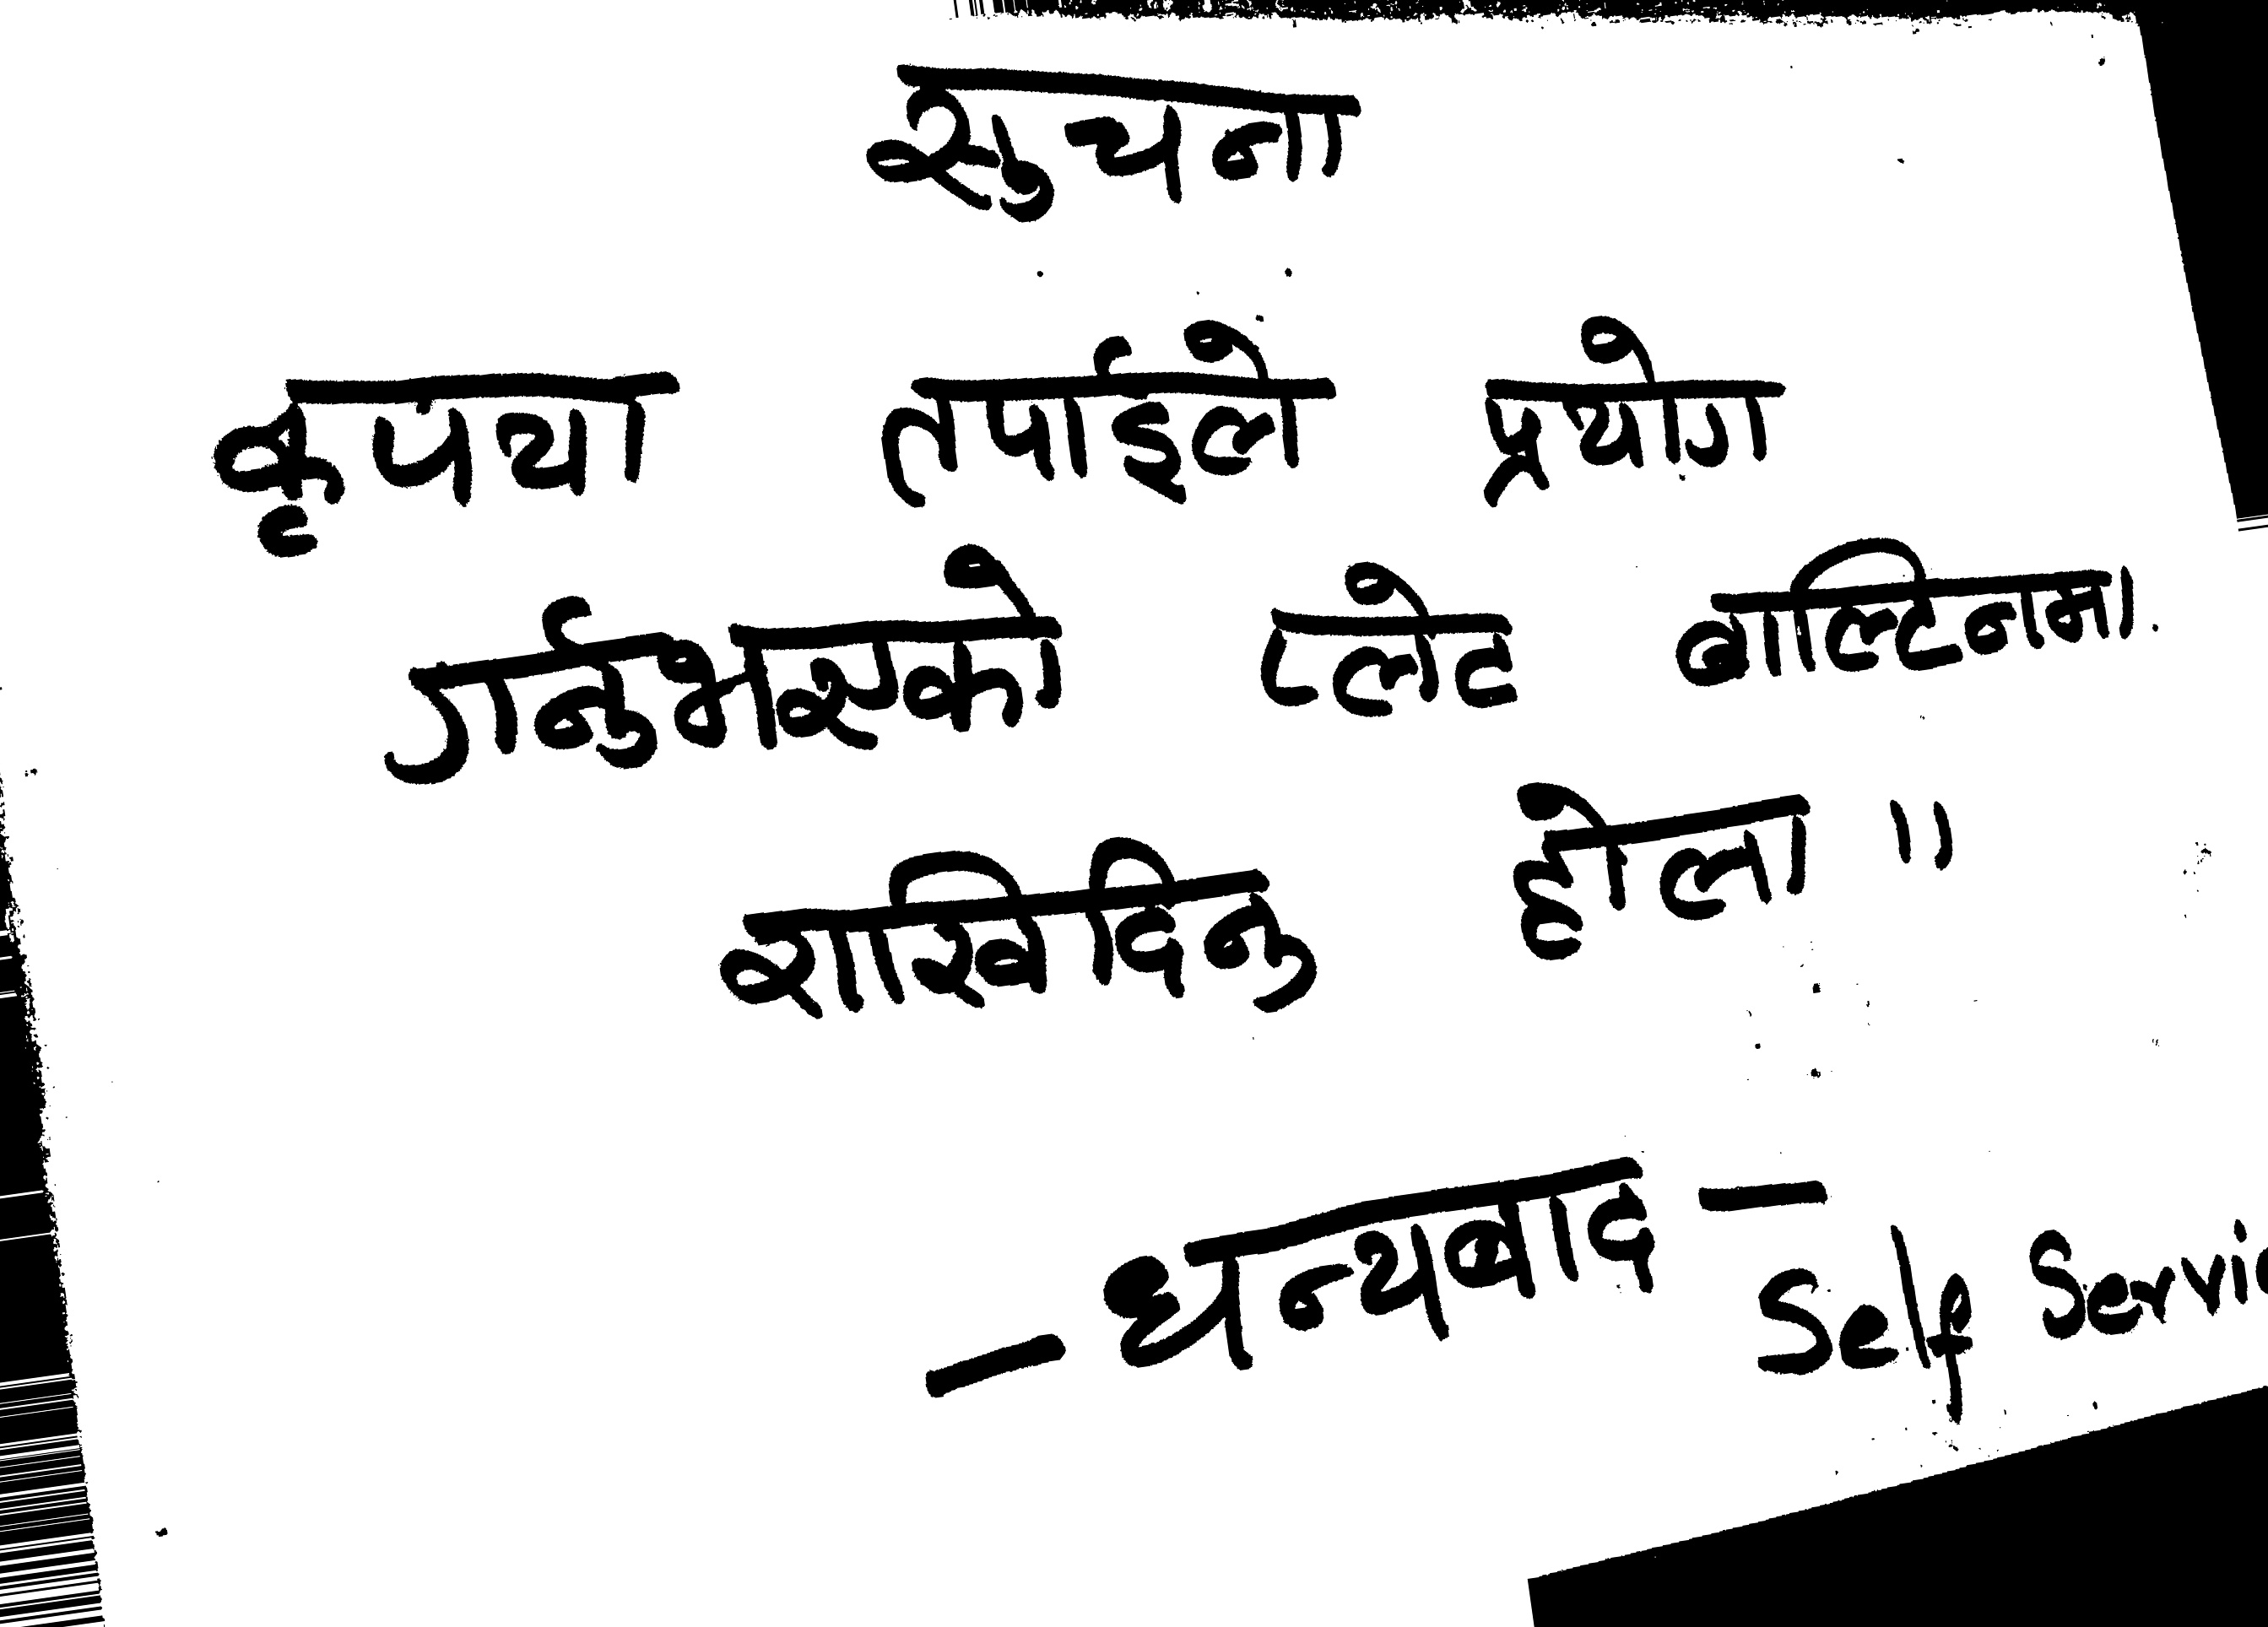 सुचना
कृपया तपाईले प्रयोग
गर्नुभएको प्लेट बाल्टिनमा
राखिदिनु होला ॥
- धन्यबाद -
Self Servic